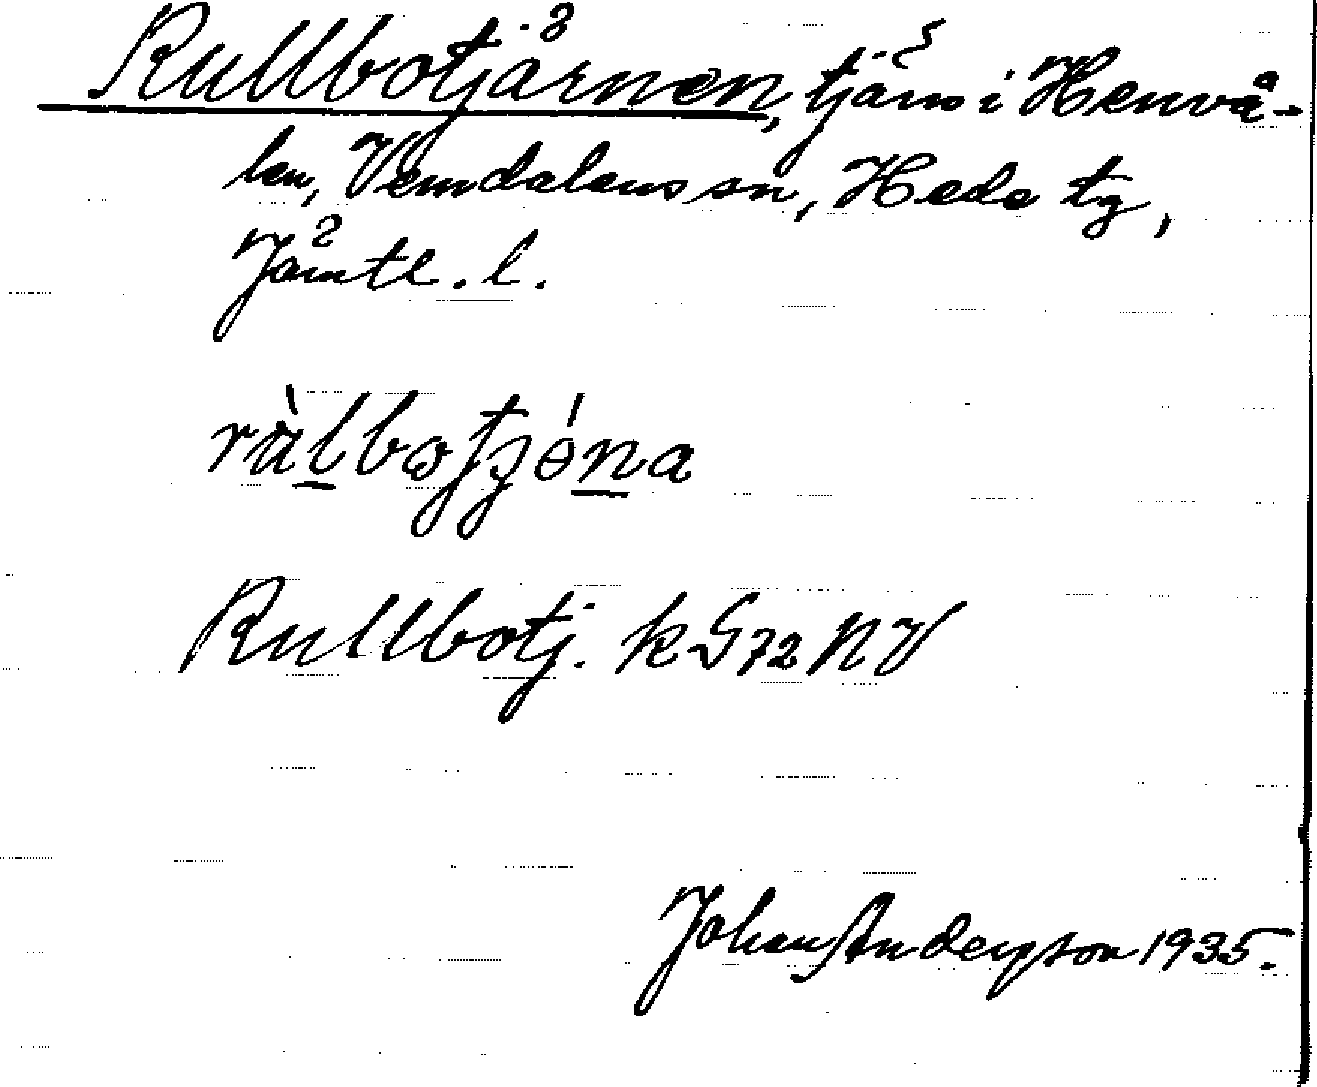 Rullbotjärnen, tjärn i Henvå-
len, Vemdalens sn, Hede tg,
Jämtl. l.
ràlbotjöna
Rullbotj. k G72 NV
Johan Anderson 1935.